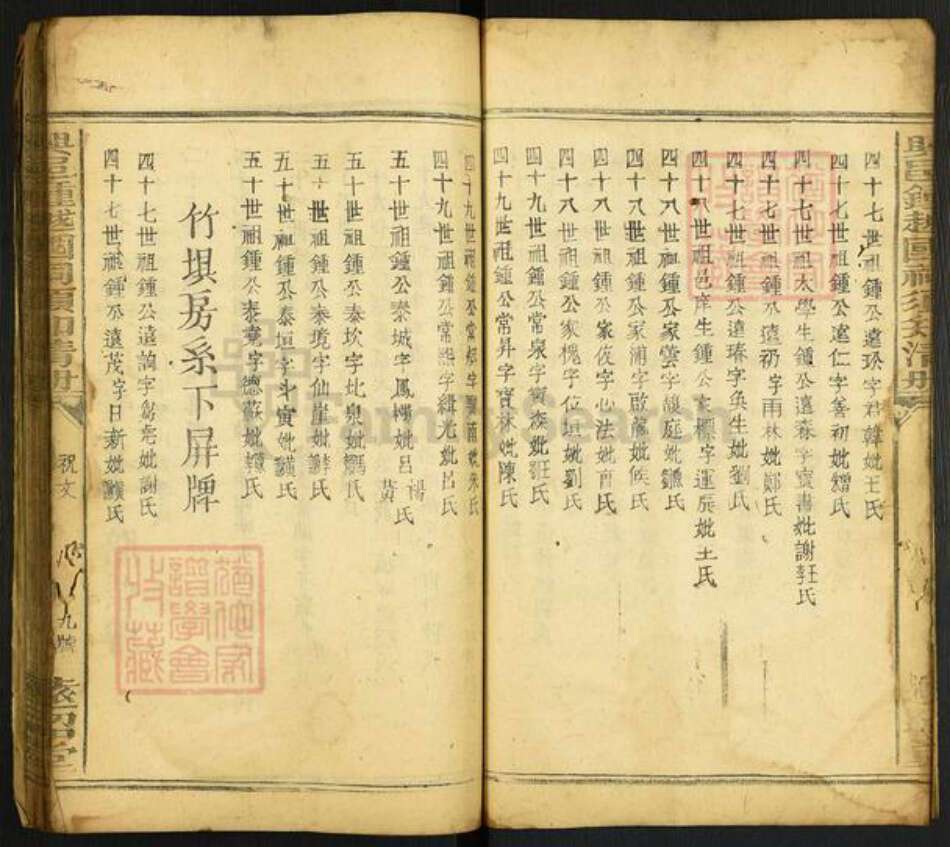 四十七世祖鍾公遠珍字君韓妣王氏
四十七世祖鍾公遠仁字善初妣氏
四十七世祖太學生鍾公遠森字寶書妣謝汪李氏
四十七世祖鍾公遠礽字雨林妣鄭氏
四十七世祖鍾公遠瑃字奐生妣劉氏
四十八世祖邑庠生鍾公家標字運辰妣王氏
四十八世祖鍾公家雲字馥庭妣氏
四十八世祖鍾公家浦字啟藩妣侯氏
四十八世祖鍾公家俊字心法妣氏
四十八世祖鍾公家槐字位垣妣劉氏
四十九世祖鍾公常泉字森妣汪氏
四十九世祖鍾公常昇字賓林妣陳氏
四十九世祖鍾公常字妣朱氏
四十九世祖鍾公常熙字緝光妣呂氏
五十世祖鍾公泰城字鳳樓妣呂楊黃氏
五十世祖鍾公泰坎字北泉妣氏
五十世祖鍾公泰境字仙崖妣氏
五十世祖鍾公泰垣字斗寅妣氏
五十世祖鍾公泰堯字德蘇妣氏
竹垻房系下屏牌
四十七世祖鍾公遠詢字芻堯妣謝氏
四十七世祖鍾公遠茂字日新妣氏
興邑鍾越國祠須知清册
祝文
九號
FamilySearch